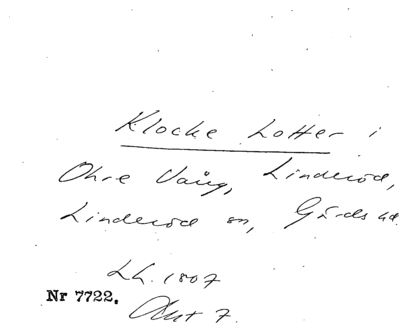 Klocke Lotter i
Ohre Vång, Linderöd,
Linderöd sn, Gärds hd.
Lh. 1807
Nr 7722.
Akt 7.